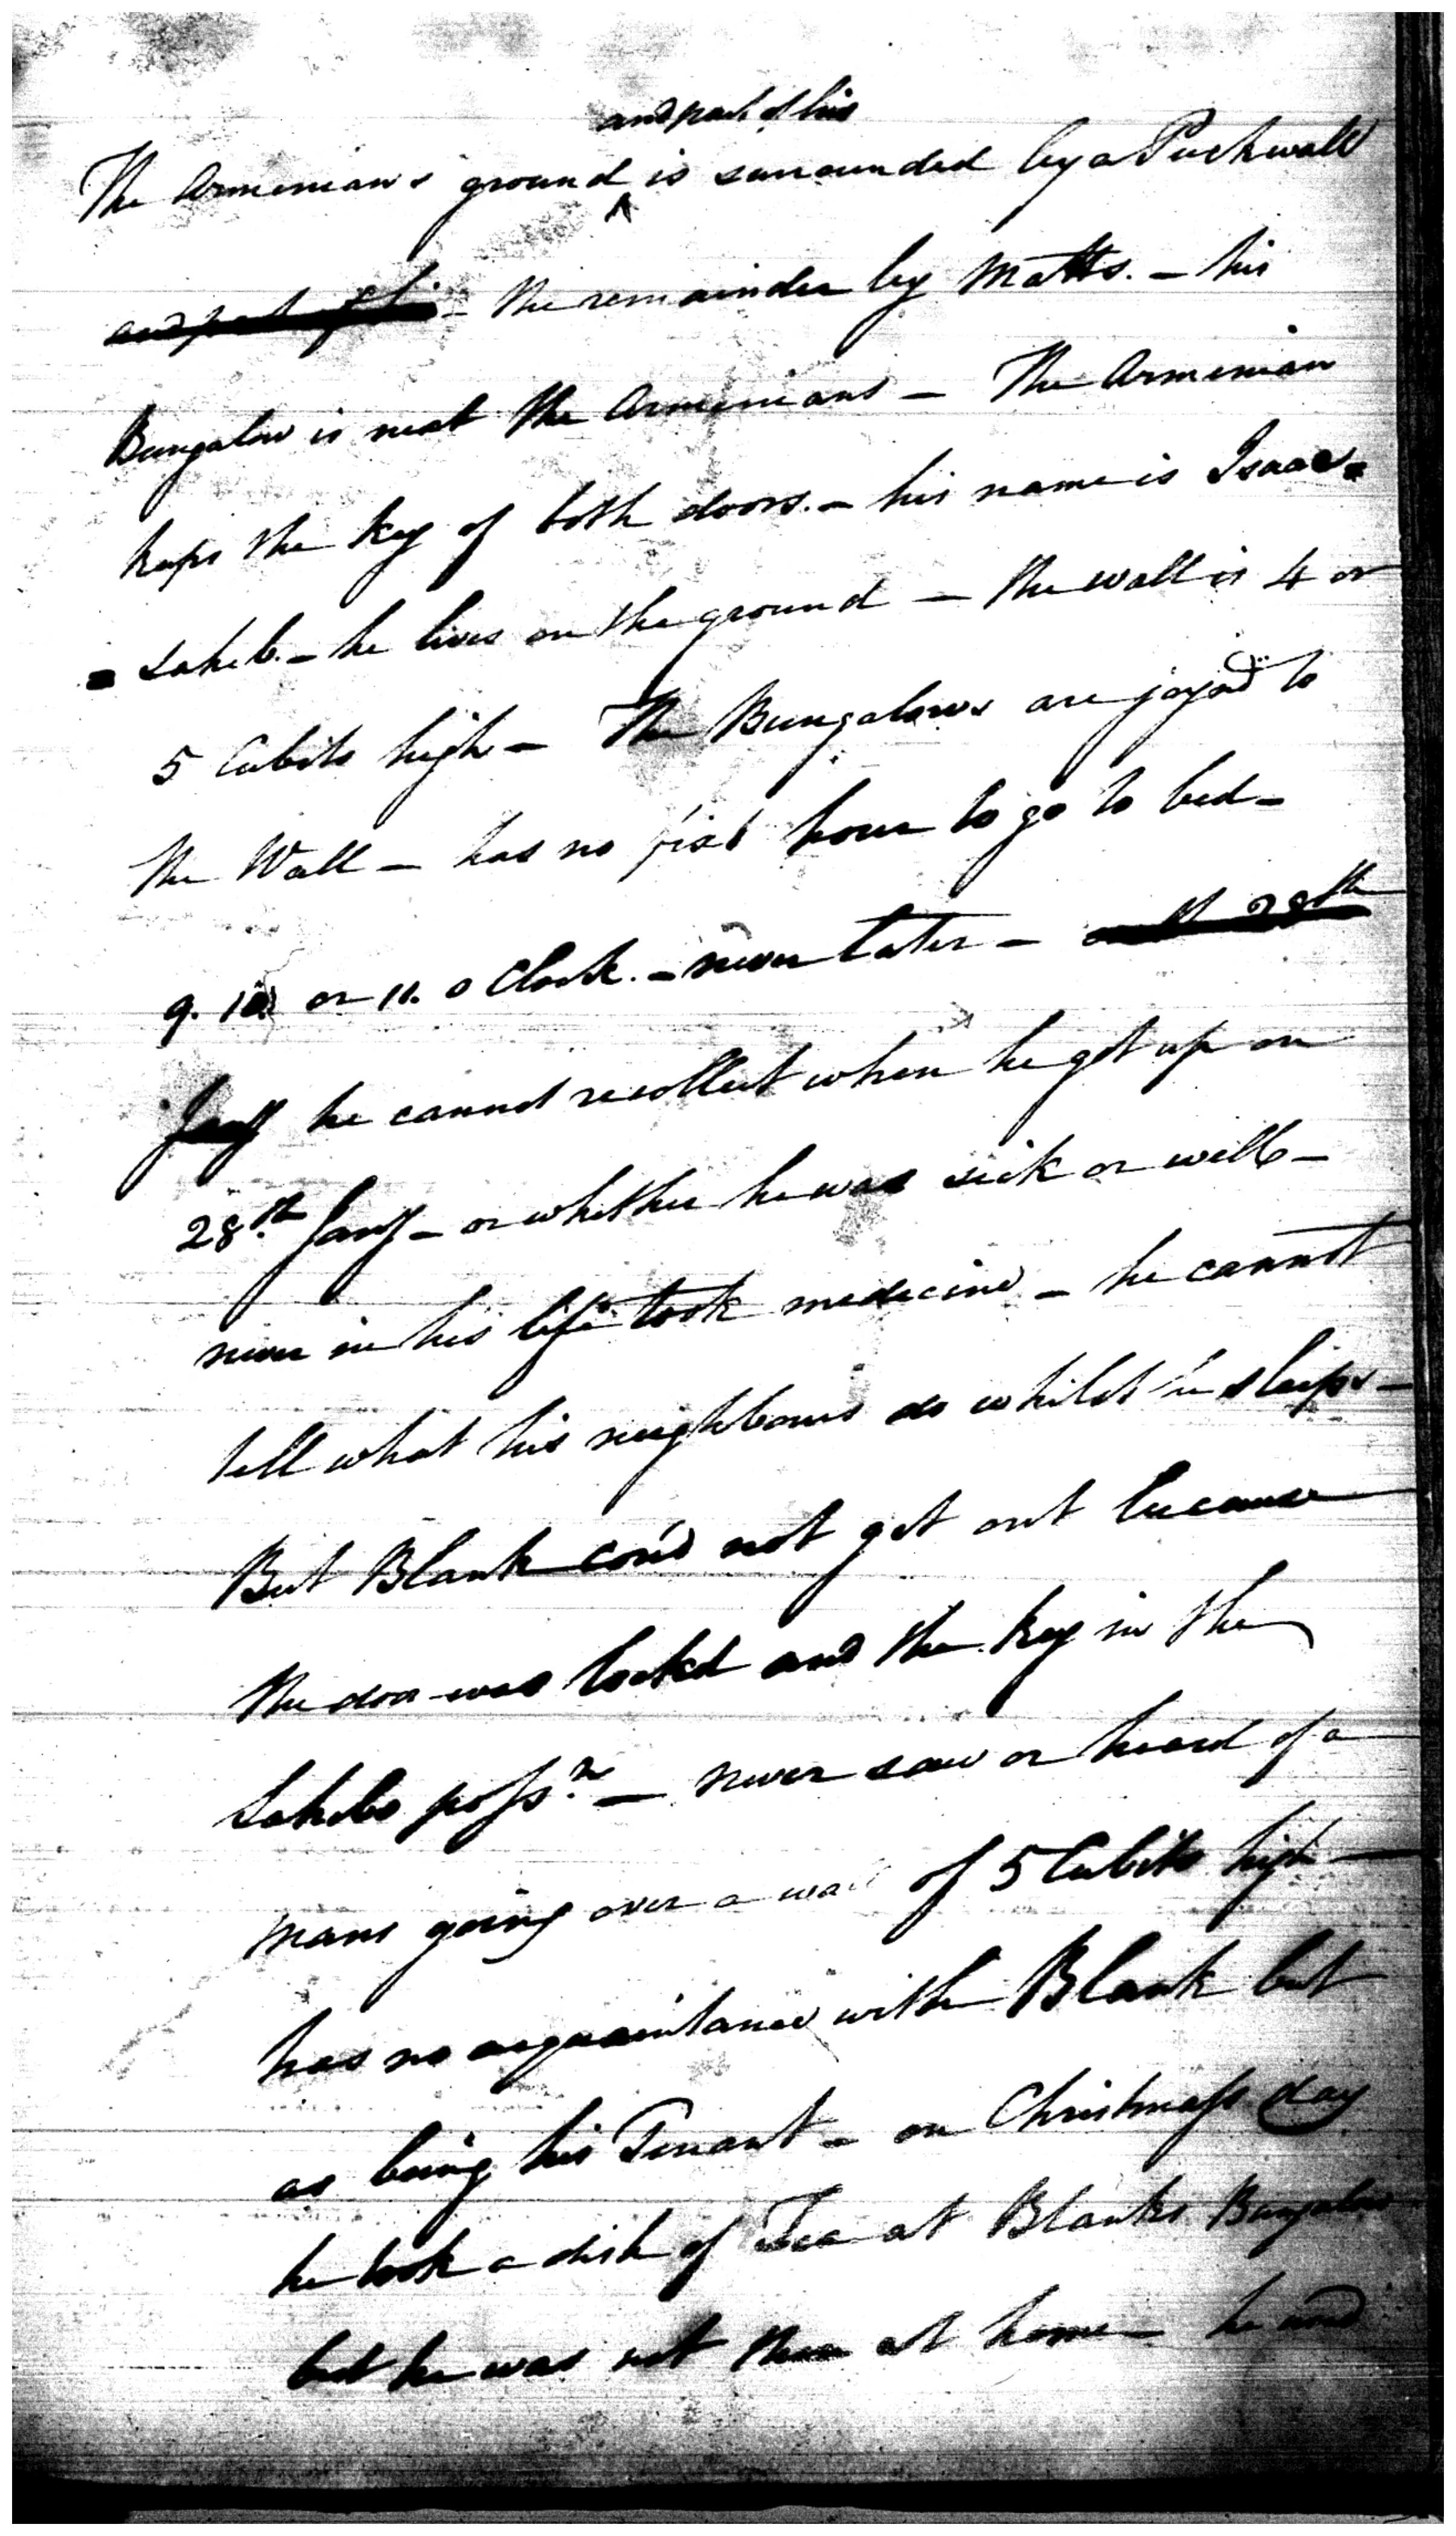 and part of his
The Armenians ground ^ is surrounded by a Puck wall
and part of his - the remainder by Matts. - his
Bungalow is next the Armenians - The Armenian
keeps the key of both doors. - his name is Isaac
Saheb. - he lives on the ground - the wall is 4 or
5 Cubits high - The Bungalows are joyned to
the Wall - has no fixt hour to go to bed -
9. 10 or 11. o Clock. - never later - on the 28th
Jany he cannot recollect when he got up on
28th Jany - or whether he was sick or well -
never in his life took medicine - he cannot
tell what his neighbours do whilst he sleeps -
But Blank cou'd not get out because
the door was lockd and the key in the
Sahebs possn. - never saw or heard of a
mans going over a wall of 5 Cubits high -
has no acquaintance with Blank but
as being his Tenant - on Christmass day
he took a dish of Tea at Blanks Bungalow
but he was not then at home he and